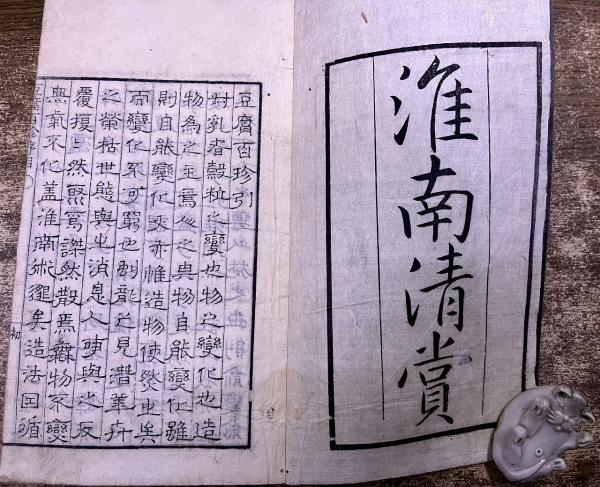 淮南清賞
豆腐百珍引
乳者穀粒之變也物之變化也造
物為之主焉 之與物自能變化雖
則自能變化矣亦惟造物使然也矣
而變化不可窮也 龍之見潛華卉
之榮枯世態與之消息人事與之反
覆擾〻然 焉 然散焉無物不變
無氣不化蓋淮南術 矣造法因循
初